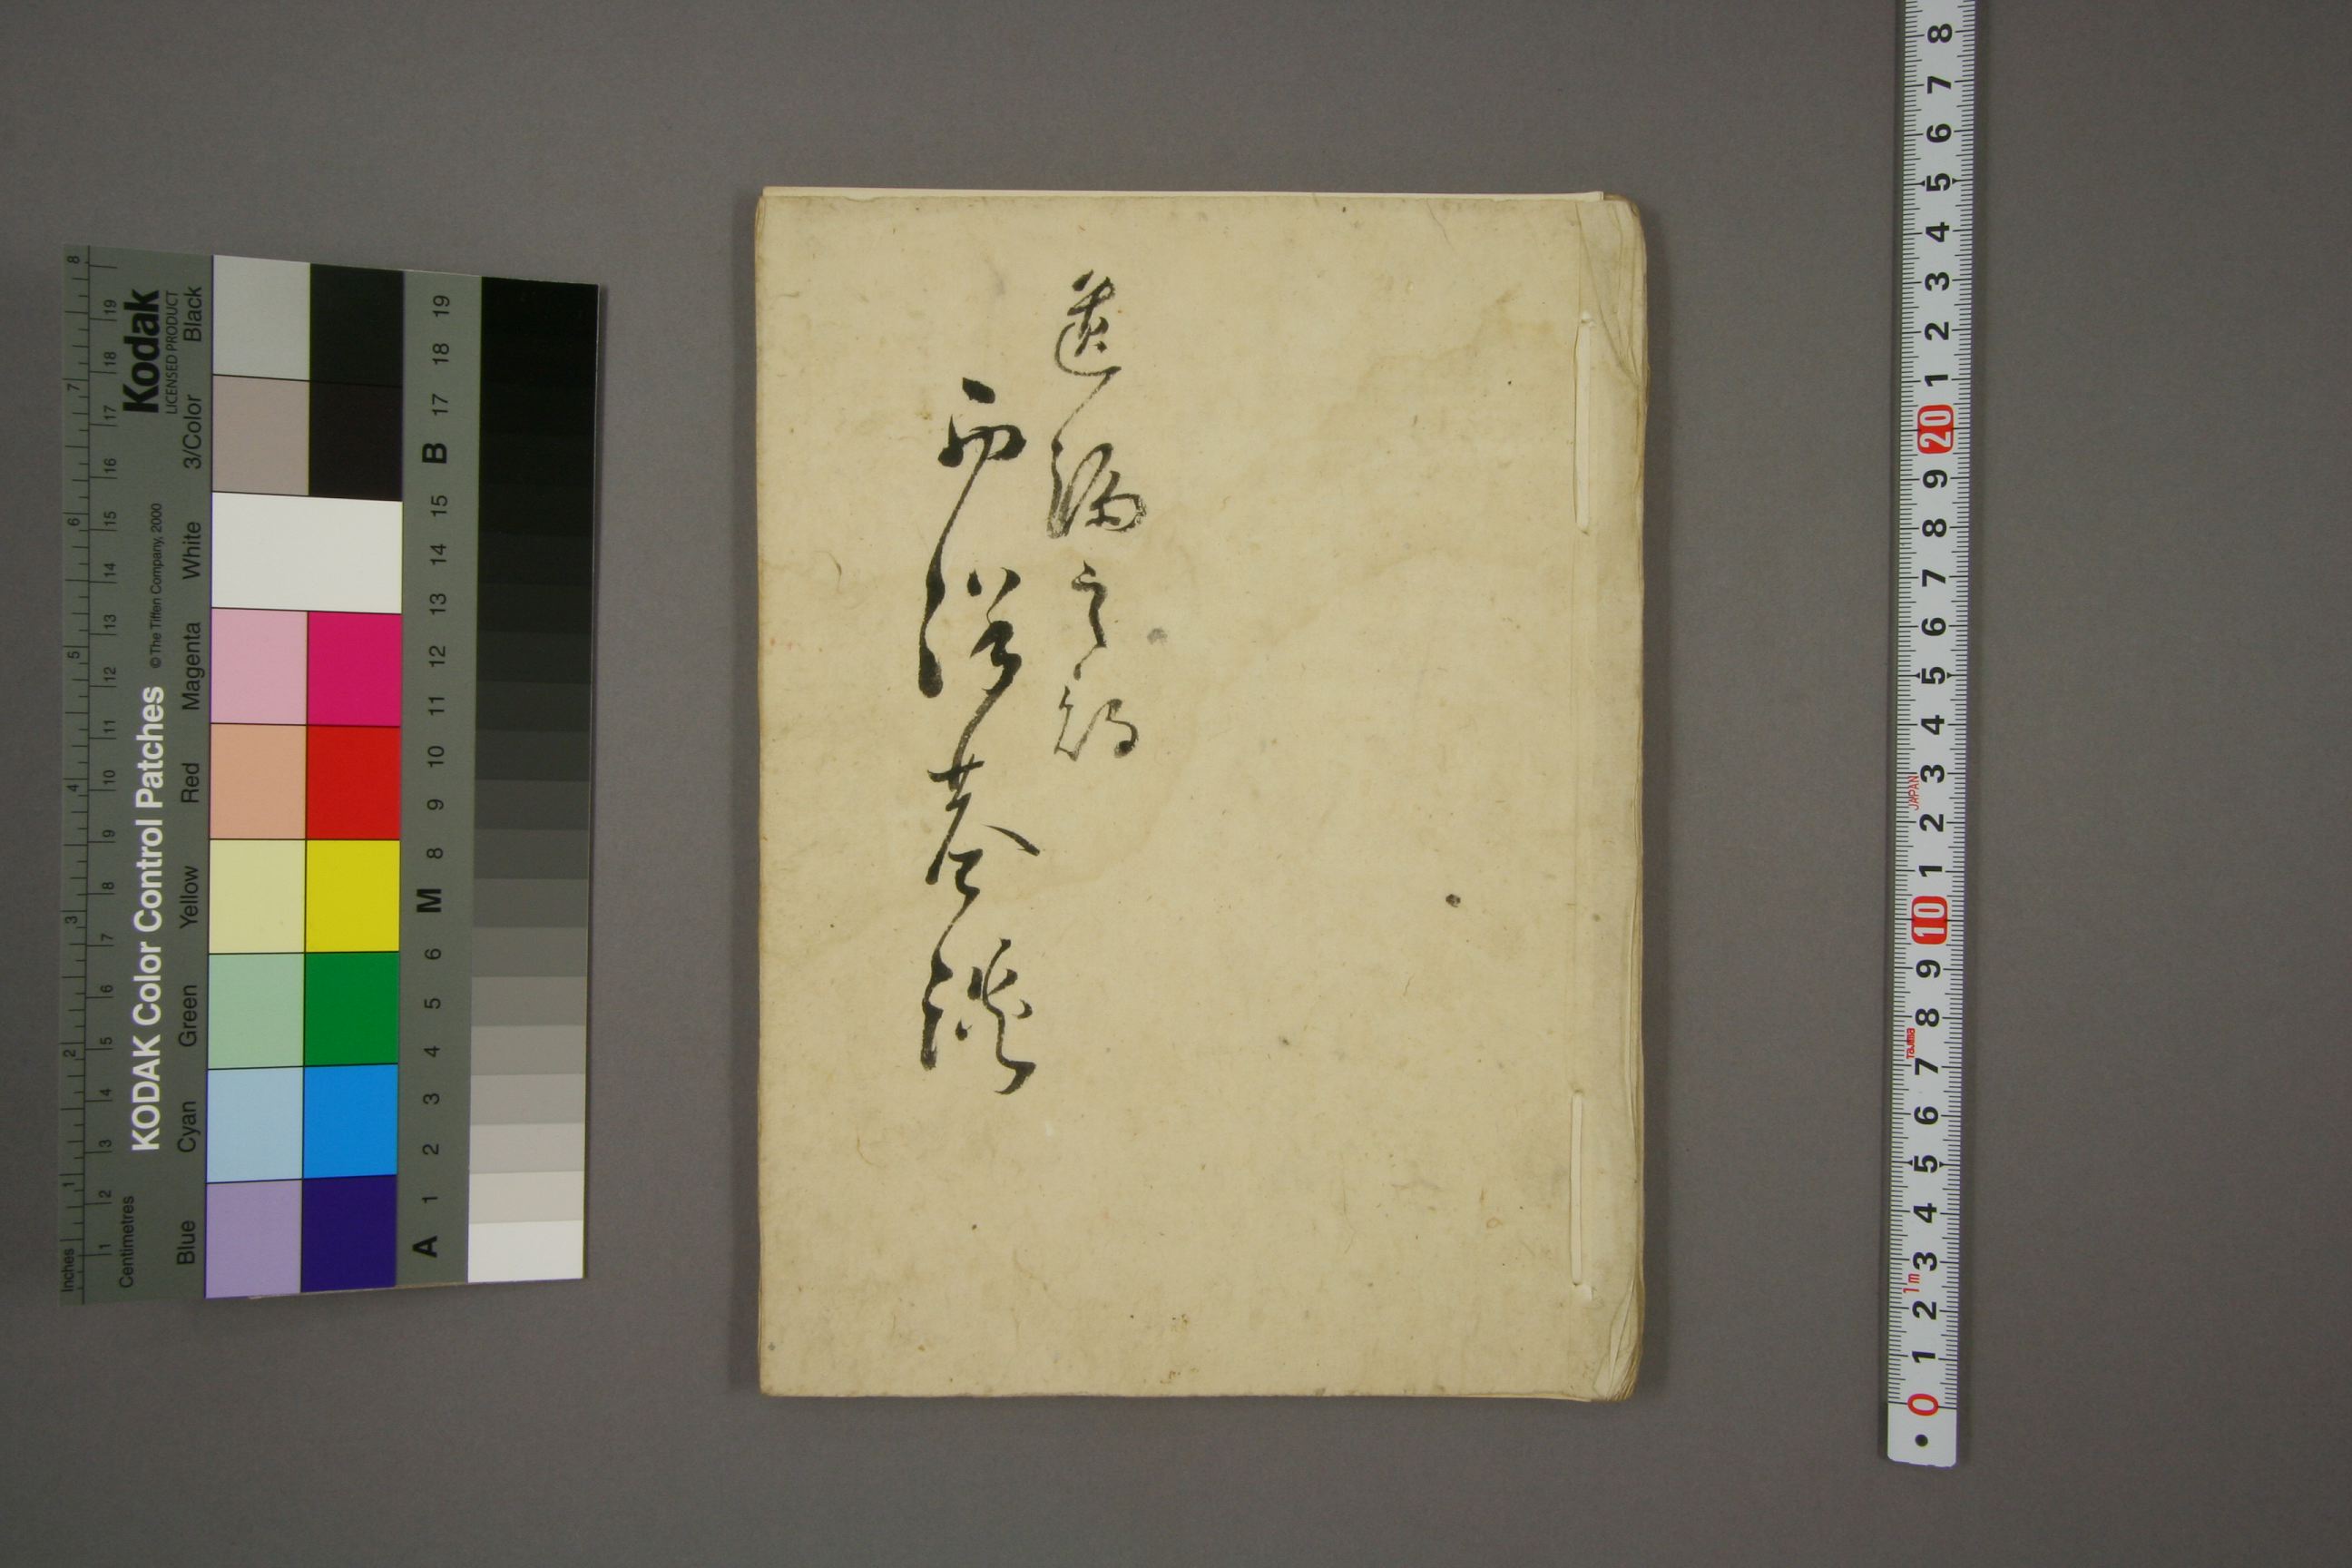 遺漏之
巷談
Kodak
LICENSED PRODUCT
KODAK Color Control Patches
© The Tiffen Company, 2000
Blue Cyan Green Yellow Red Magenta White 3/Color Black
Inches 1 2 3 4 5 6 7 8
Centimetres 1 2 3 4 5 6 7 8 9 10 11 12 13 14 15 16 17 18 19
A 1 2 3 4 5 6 M 8 9 10 11 12 13 14 15 B 17 18 19
0 1 2 3 4 5 6 7 8 9 10 1 2 3 4 5 6 7 8 9 20 1 2 3 4 5 6 7 8
1m
Tajima
JAPAN